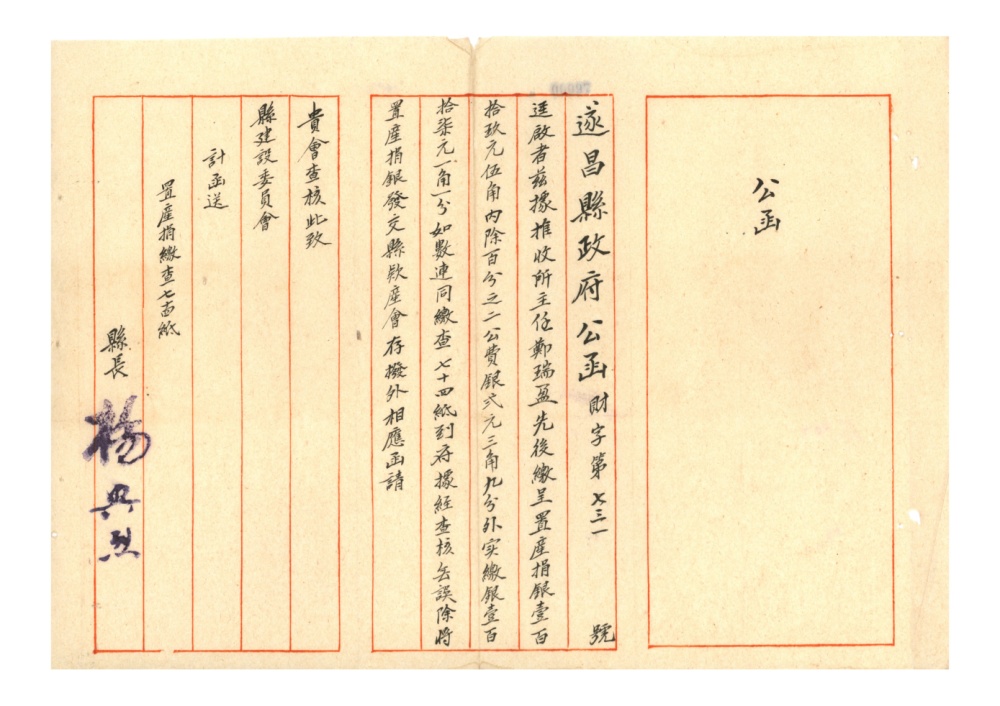 公函
遂昌縣政府公函 財字第七三一 號
逕啟者茲據推收所主任鄭瑞盈先後繳呈置產捐銀壹百
拾玖元伍角內除百分之二公費銀弍元三角九分外实繳銀壹百
拾柒元一角一分如數連同繳查七十四紙到府據經查核無誤除將
置產捐銀發交縣欵產會存撥外相應函請
貴會查核此致
縣建設委員會
計函送
置產捐繳查七十四紙
縣長 楊興烈